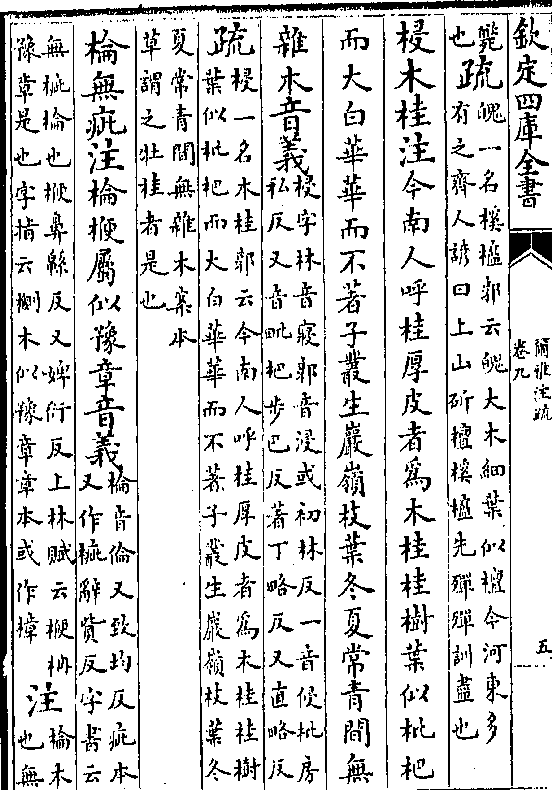 欽定四庫全書
爾雅注疏
卷九
五
斃疏魄一名榽𣞙郭云魄大木細葉似檀今河東多
也有之齊人諺曰上山斫檀榽𣞙先殫殫訓盡也
梫木桂注今南人呼桂厚皮者為木桂桂樹葉似枇杷
而大白華華而不著子叢生巖嶺枝葉冬夏常青間無
雜木音義梫字林音寢郭音浸或初林反一音侵枇房
私反又音毗杷步巴反著丁略反又直略反
疏梫一名木桂郭云今南人呼桂厚皮者為木桂桂樹
葉似枇杷而大白華華而不著子叢生巖嶺枝葉冬
夏常青間無雜木案本
草謂之牡桂者是也
棆無疵注棆楩屬似豫章音義棆音倫又致均反疵本
又作㭰辭貲反字書云
無㭰棆也楩鼻緜反又婢衍反上林賦云楩柟
豫章是也字指云楩木似豫章章本或作樟注棆木
也無